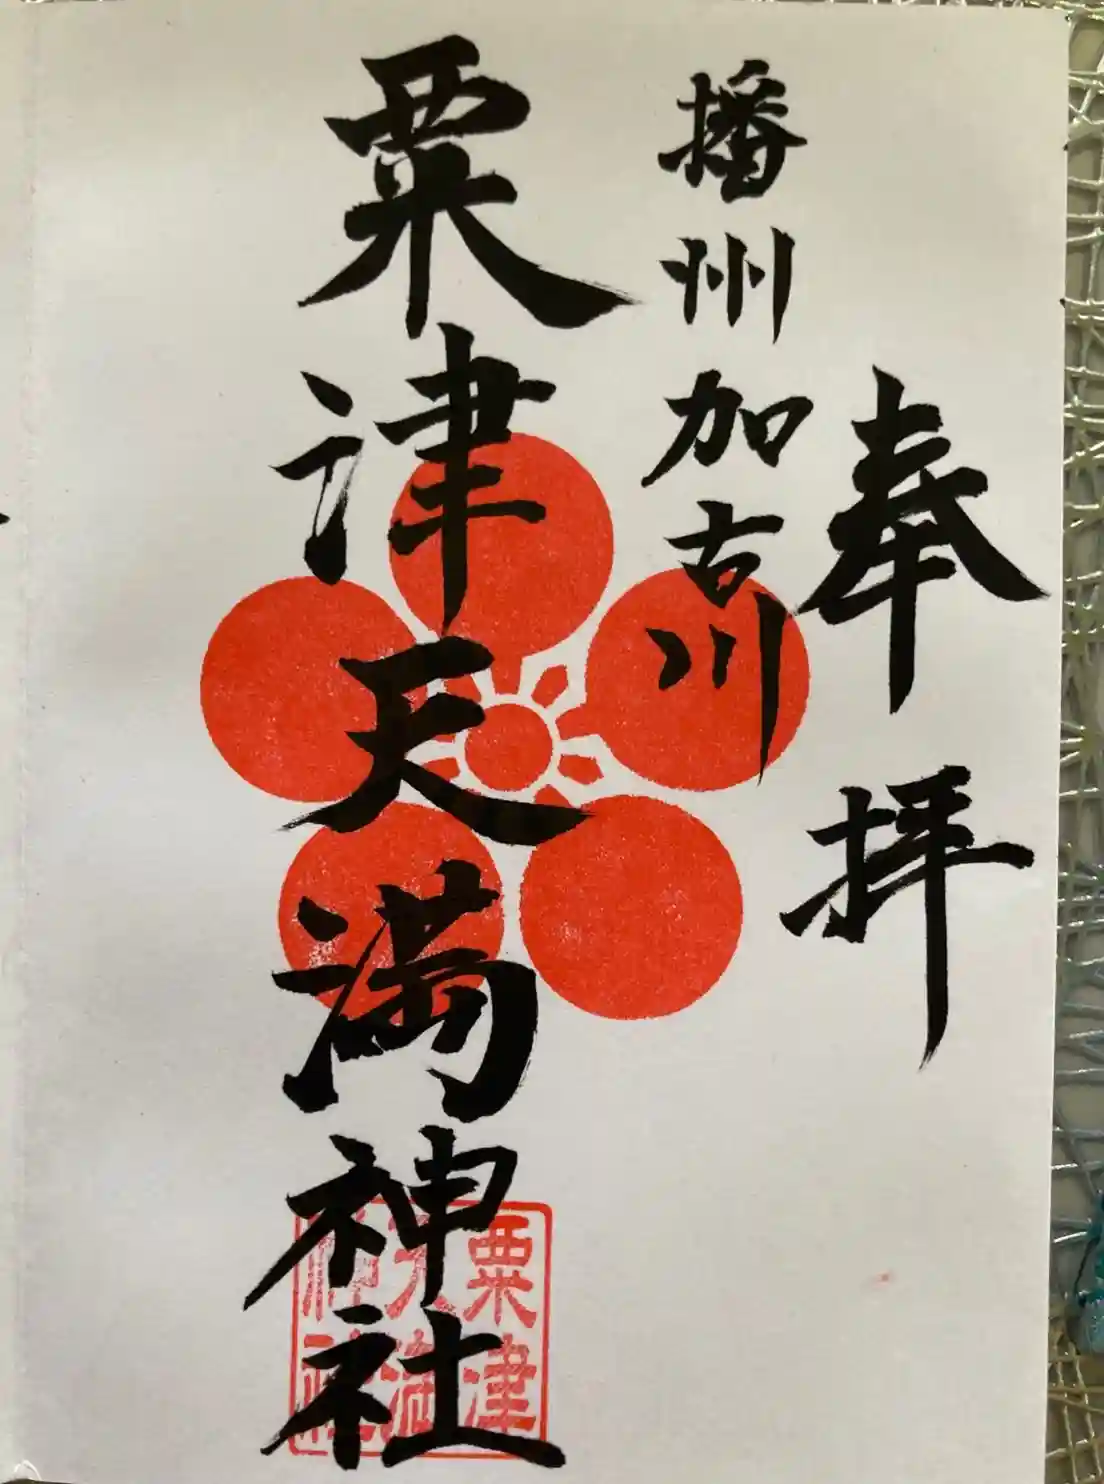 奉拝
播州加古川
粟津天満神社
粟津
天満
神社